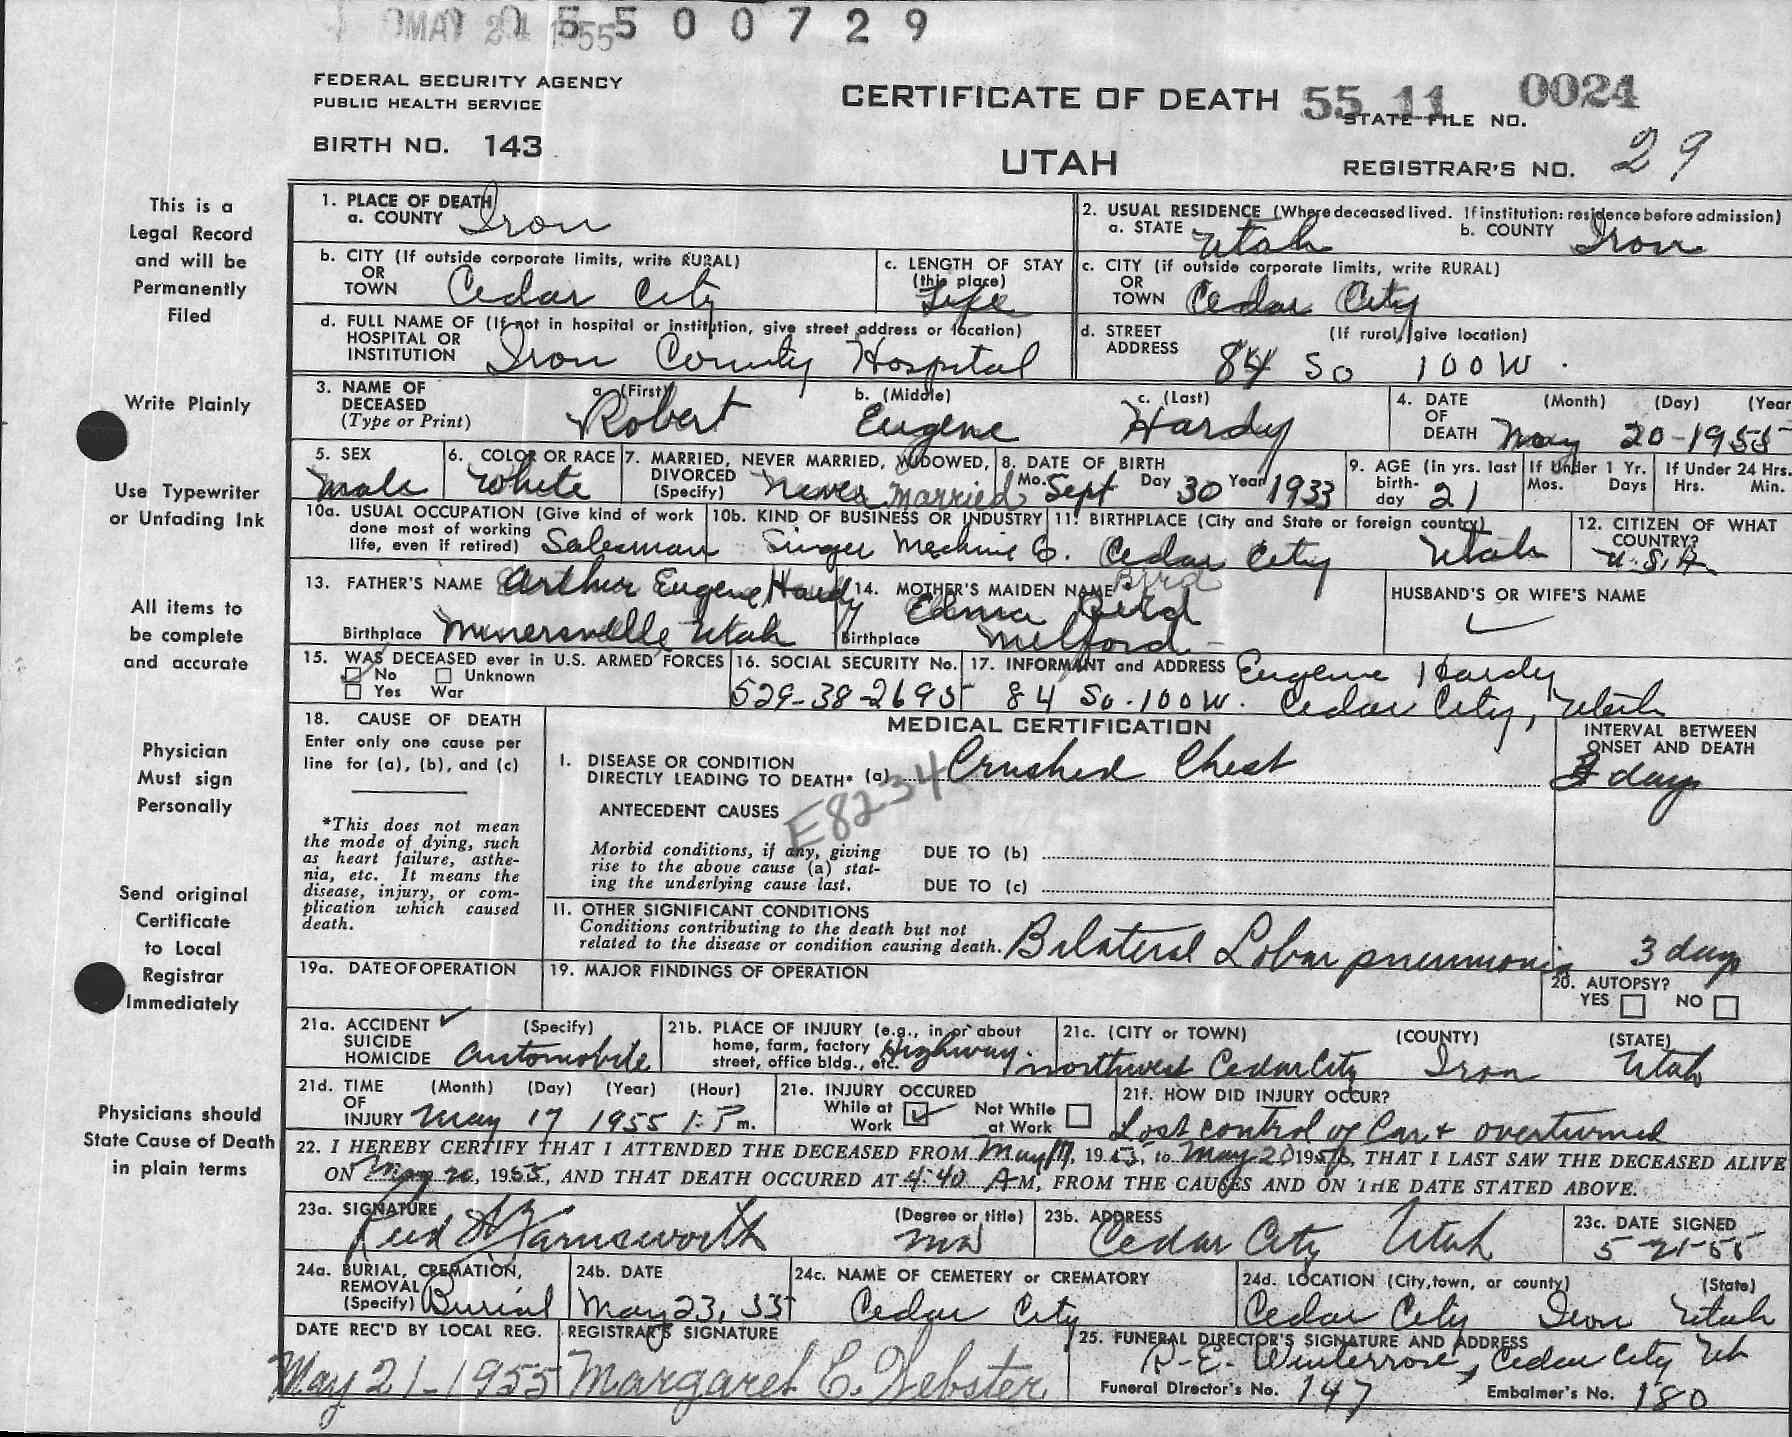 MAY 24 1955 5 5 0 0 7 2 9
FEDERAL SECURITY AGENCY
PUBLIC HEALTH SERVICE
BIRTH NO. 143
CERTIFICATE OF DEATH 55 11 0024
STATE FILE NO.
UTAH
REGISTRAR'S NO. 29
This is a
Legal Record
and will be
Permanently
Filed
Write Plainly
Use Typewriter
or Unfading Ink
All items to
be complete
and accurate
Physician
Must sign
Personally
Send original
Certificate
to Local
Registrar
Immediately
Physicians should
State Cause of Death
in plain terms
1. PLACE OF DEATH
a. COUNTY Iron
2. USUAL RESIDENCE (Where deceased lived. If institution: residence before admission)
a. STATE Utah b. COUNTY Iron
b. CITY (If outside corporate limits, write RURAL)
OR
TOWN Cedar City
c. LENGTH OF STAY
(this place)
Life
c. CITY (if outside corporate limits, write RURAL)
OR
TOWN Cedar City
d. FULL NAME OF (If not in hospital or institution, give street address or location)
HOSPITAL OR
INSTITUTION Iron County Hospital
d. STREET (If rural, give location)
ADDRESS 84 So 100 W.
3. NAME OF DECEASED (Type or Print)
a. (First) b. (Middle) c. (Last)
Robert Eugene Hardy
4. DATE (Month) (Day) (Year
OF
DEATH May 20-1955
5. SEX
Male
6. COLOR OR RACE
White
7. MARRIED, NEVER MARRIED, WIDOWED,
DIVORCED
(Specify) Never Married
8. DATE OF BIRTH
Mo. Sept Day 30 Year 1933
9. AGE (in yrs. last
birth-
day 21
If Under 1 Yr.
Mos. Days
If Under 24 Hrs.
Hrs. Min.
10a. USUAL OCCUPATION (Give kind of work
done most of working
life, even if retired) Salesman
10b. KIND OF BUSINESS OR INDUSTRY
Singer Machine Co.
11. BIRTHPLACE (City and State or foreign country)
Cedar City Utah
12. CITIZEN OF WHAT
COUNTRY?
U.S.A.
13. FATHER'S NAME Arthur Eugene Hardy
Birthplace Minersville Utah
14. MOTHER'S MAIDEN NAME Byrd
Edna
Birthplace Milford
HUSBAND'S OR WIFE'S NAME
15. WAS DECEASED ever in U.S. ARMED FORCES
No Unknown
Yes War
16. SOCIAL SECURITY No.
529-38-2695
17. INFORMANT and ADDRESS Eugene Hardy
84 So. 100 W. Cedar City, Utah
18. CAUSE OF DEATH
Enter only one cause per
line for (a), (b), and (c)
*This does not mean
the mode of dying, such
as heart failure, asthe-
nia, etc. It means the
disease, injury, or com-
plication which caused
death.
MEDICAL CERTIFICATION
INTERVAL BETWEEN
ONSET AND DEATH
I. DISEASE OR CONDITION
DIRECTLY LEADING TO DEATH* (a) Crushed Chest
3 days
E8234
ANTECEDENT CAUSES
Morbid conditions, if any, giving
rise to the above cause (a) stat-
ing the underlying cause last.
DUE TO (b)
DUE TO (c)
II. OTHER SIGNIFICANT CONDITIONS
Conditions contributing to the death but not
related to the disease or condition causing death. Bilateral Lobar pneumonia 3 days
19a. DATE OF OPERATION
19. MAJOR FINDINGS OF OPERATION
20. AUTOPSY?
YES NO
21a. ACCIDENT (Specify)
SUICIDE
HOMICIDE Automobile
21b. PLACE OF INJURY (e.g., in or about
home, farm, factory
street, office bldg., etc. Highway.
21c. (CITY or TOWN) (COUNTY) (STATE)
northwest Cedar City Iron Utah
21d. TIME (Month) (Day) (Year) (Hour)
OF
INJURY May 17 1955 1:P m.
21e. INJURY OCCURED
While at Work Not While at Work
21f. HOW DID INJURY OCCUR?
Lost control of Car & overturned
22. I HEREBY CERTIFY THAT I ATTENDED THE DECEASED FROM May 17, 1955, to May 20 1955, THAT I LAST SAW THE DECEASED ALIVE
ON May 20, 1955, AND THAT DEATH OCCURED AT 4:40 A M, FROM THE CAUSES AND ON THE DATE STATED ABOVE.
23a. SIGNATURE (Degree or title)
Reed Farnsworth MD
23b. ADDRESS
Cedar City Utah
23c. DATE SIGNED
5-21-55
24a. BURIAL, CREMATION,
REMOVAL
(Specify) Burial
24b. DATE
May 23, 55
24c. NAME OF CEMETERY or CREMATORY
Cedar City
24d. LOCATION (City, town, or county) (State)
Cedar City Iron Utah
DATE REC'D BY LOCAL REG.
May 21-1955
REGISTRAR'S SIGNATURE
Margaret C. Webster
25. FUNERAL DIRECTOR'S SIGNATURE AND ADDRESS
R-E-Winterrose, Cedar City Ut
Funeral Director's No. 147 Embalmer's No. 180